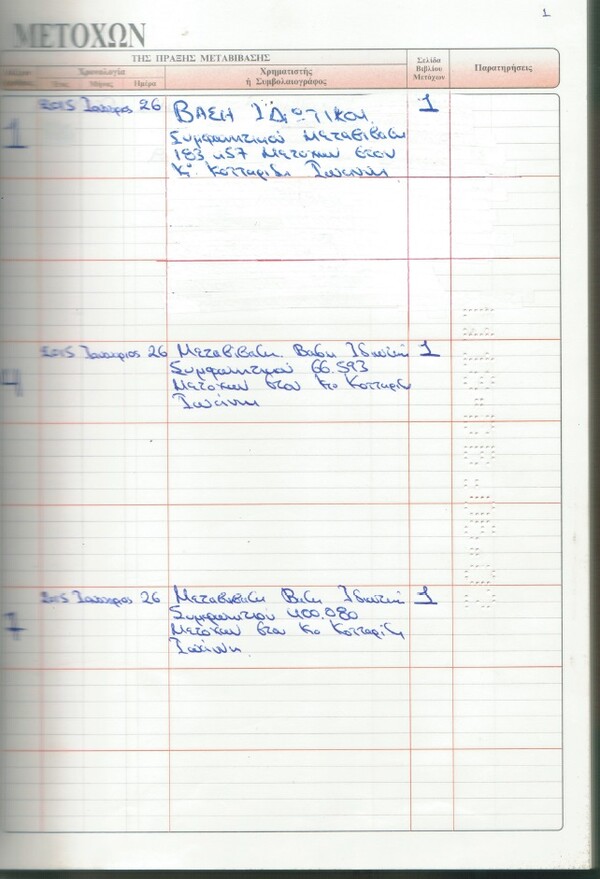 1
ΜΕΤΟΧΩΝ
ΤΗΣ ΠΡΑΞΗΣ ΜΕΤΑΒΙΒΑΣΗΣ
Χρονολογία
Έτος Μήνας Ημέρα
Χρηματιστής
ή Συμβολαιογράφος
Σελίδα
Βιβλίου
Μετόχων
Παρατηρήσεις
1 2015 Ιανουάριος 26 ΒΑΣΗ ΙΔΙΩΤΙΚΟΥ 1
Συμφωνητικού Μεταβίβαση
183.457 Μετοχών στον
Κο Κοτταρίδη Ιωάννη
4 2015 Ιανουάριος 26 Μεταβίβαση Βάση Ιδιωτικ 1
Συμφωνητικού 66.593
Μετοχών στον Κο Κοτταρίδη
Ιωάννη
7 2015 Ιανουάριος 26 Μεταβίβαση Βάση Ιδιωτικ 1
Συμφωνητικού 400.080
Μετοχών στον Κο Κοτταρίδη
Ιωάννη